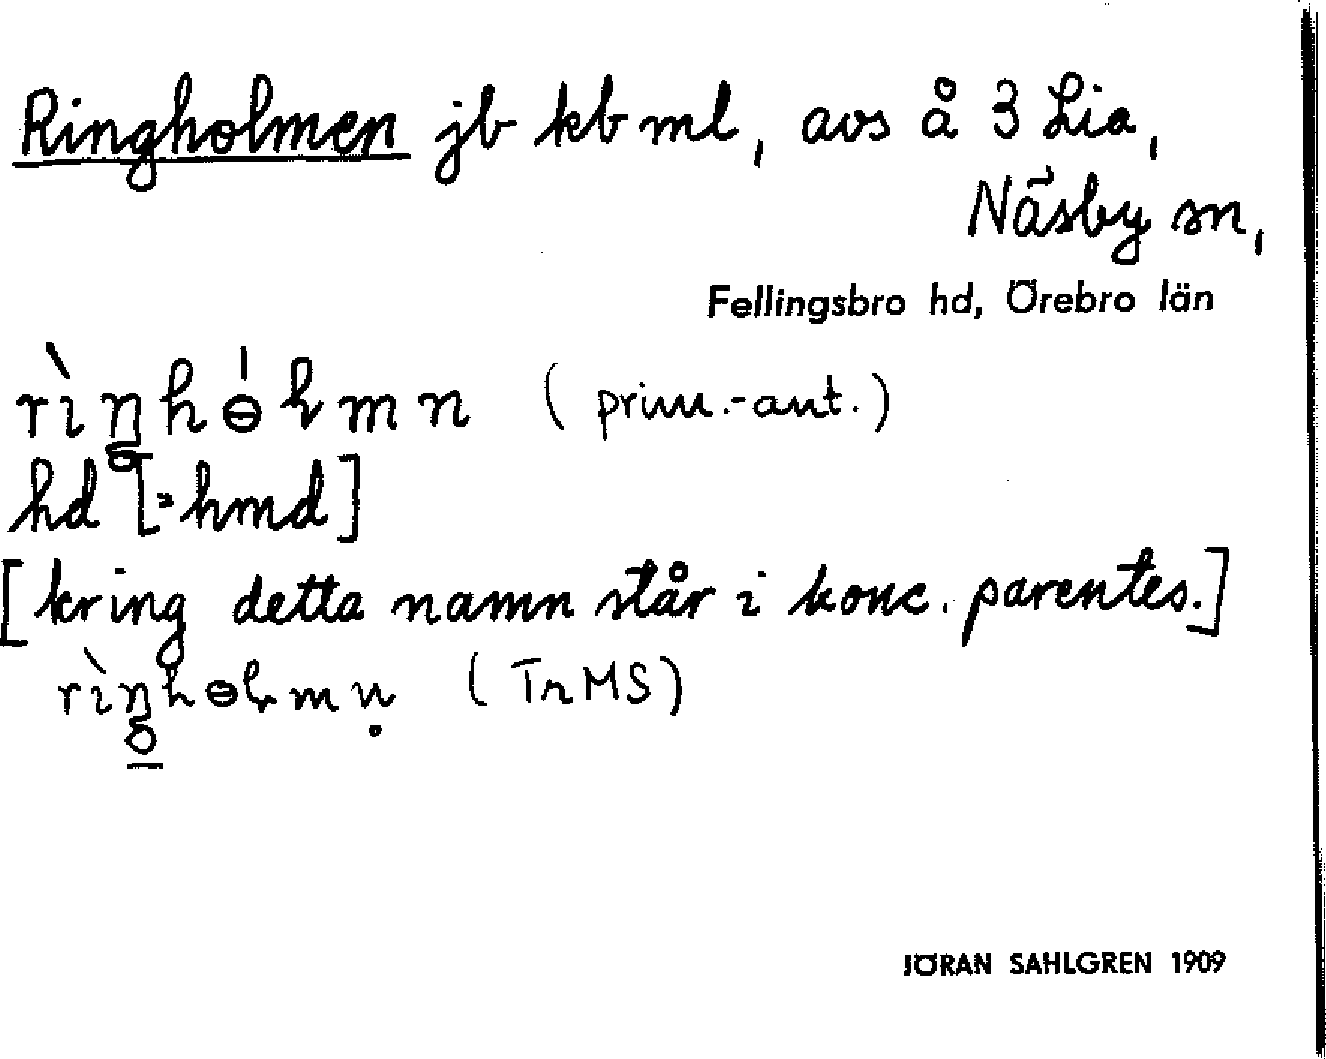 Ringholmen jb kb ml, avs å 3 Lia,
Näsby sn,
Fellingsbro hd, Örebro län
rìŋhɵ́lmn (prim.-ant.)
hd [=hmd]
[kring detta namn står i konc. parentes.]
rìŋhɵlmn̥ (TrMS)
JÖRAN SAHLGREN 1909